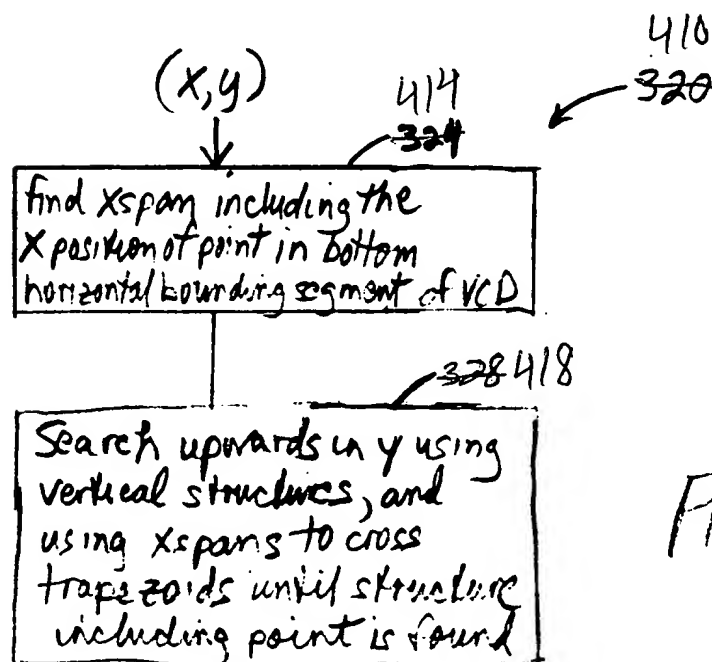 410
320
(x,y)
414
324
find xspan including the
X position of point in bottom
horizontal bounding segment of VCD
328 418
Search upwards in y using
vertical structures, and
using xspans to cross
trapezoids until structure
including point is found